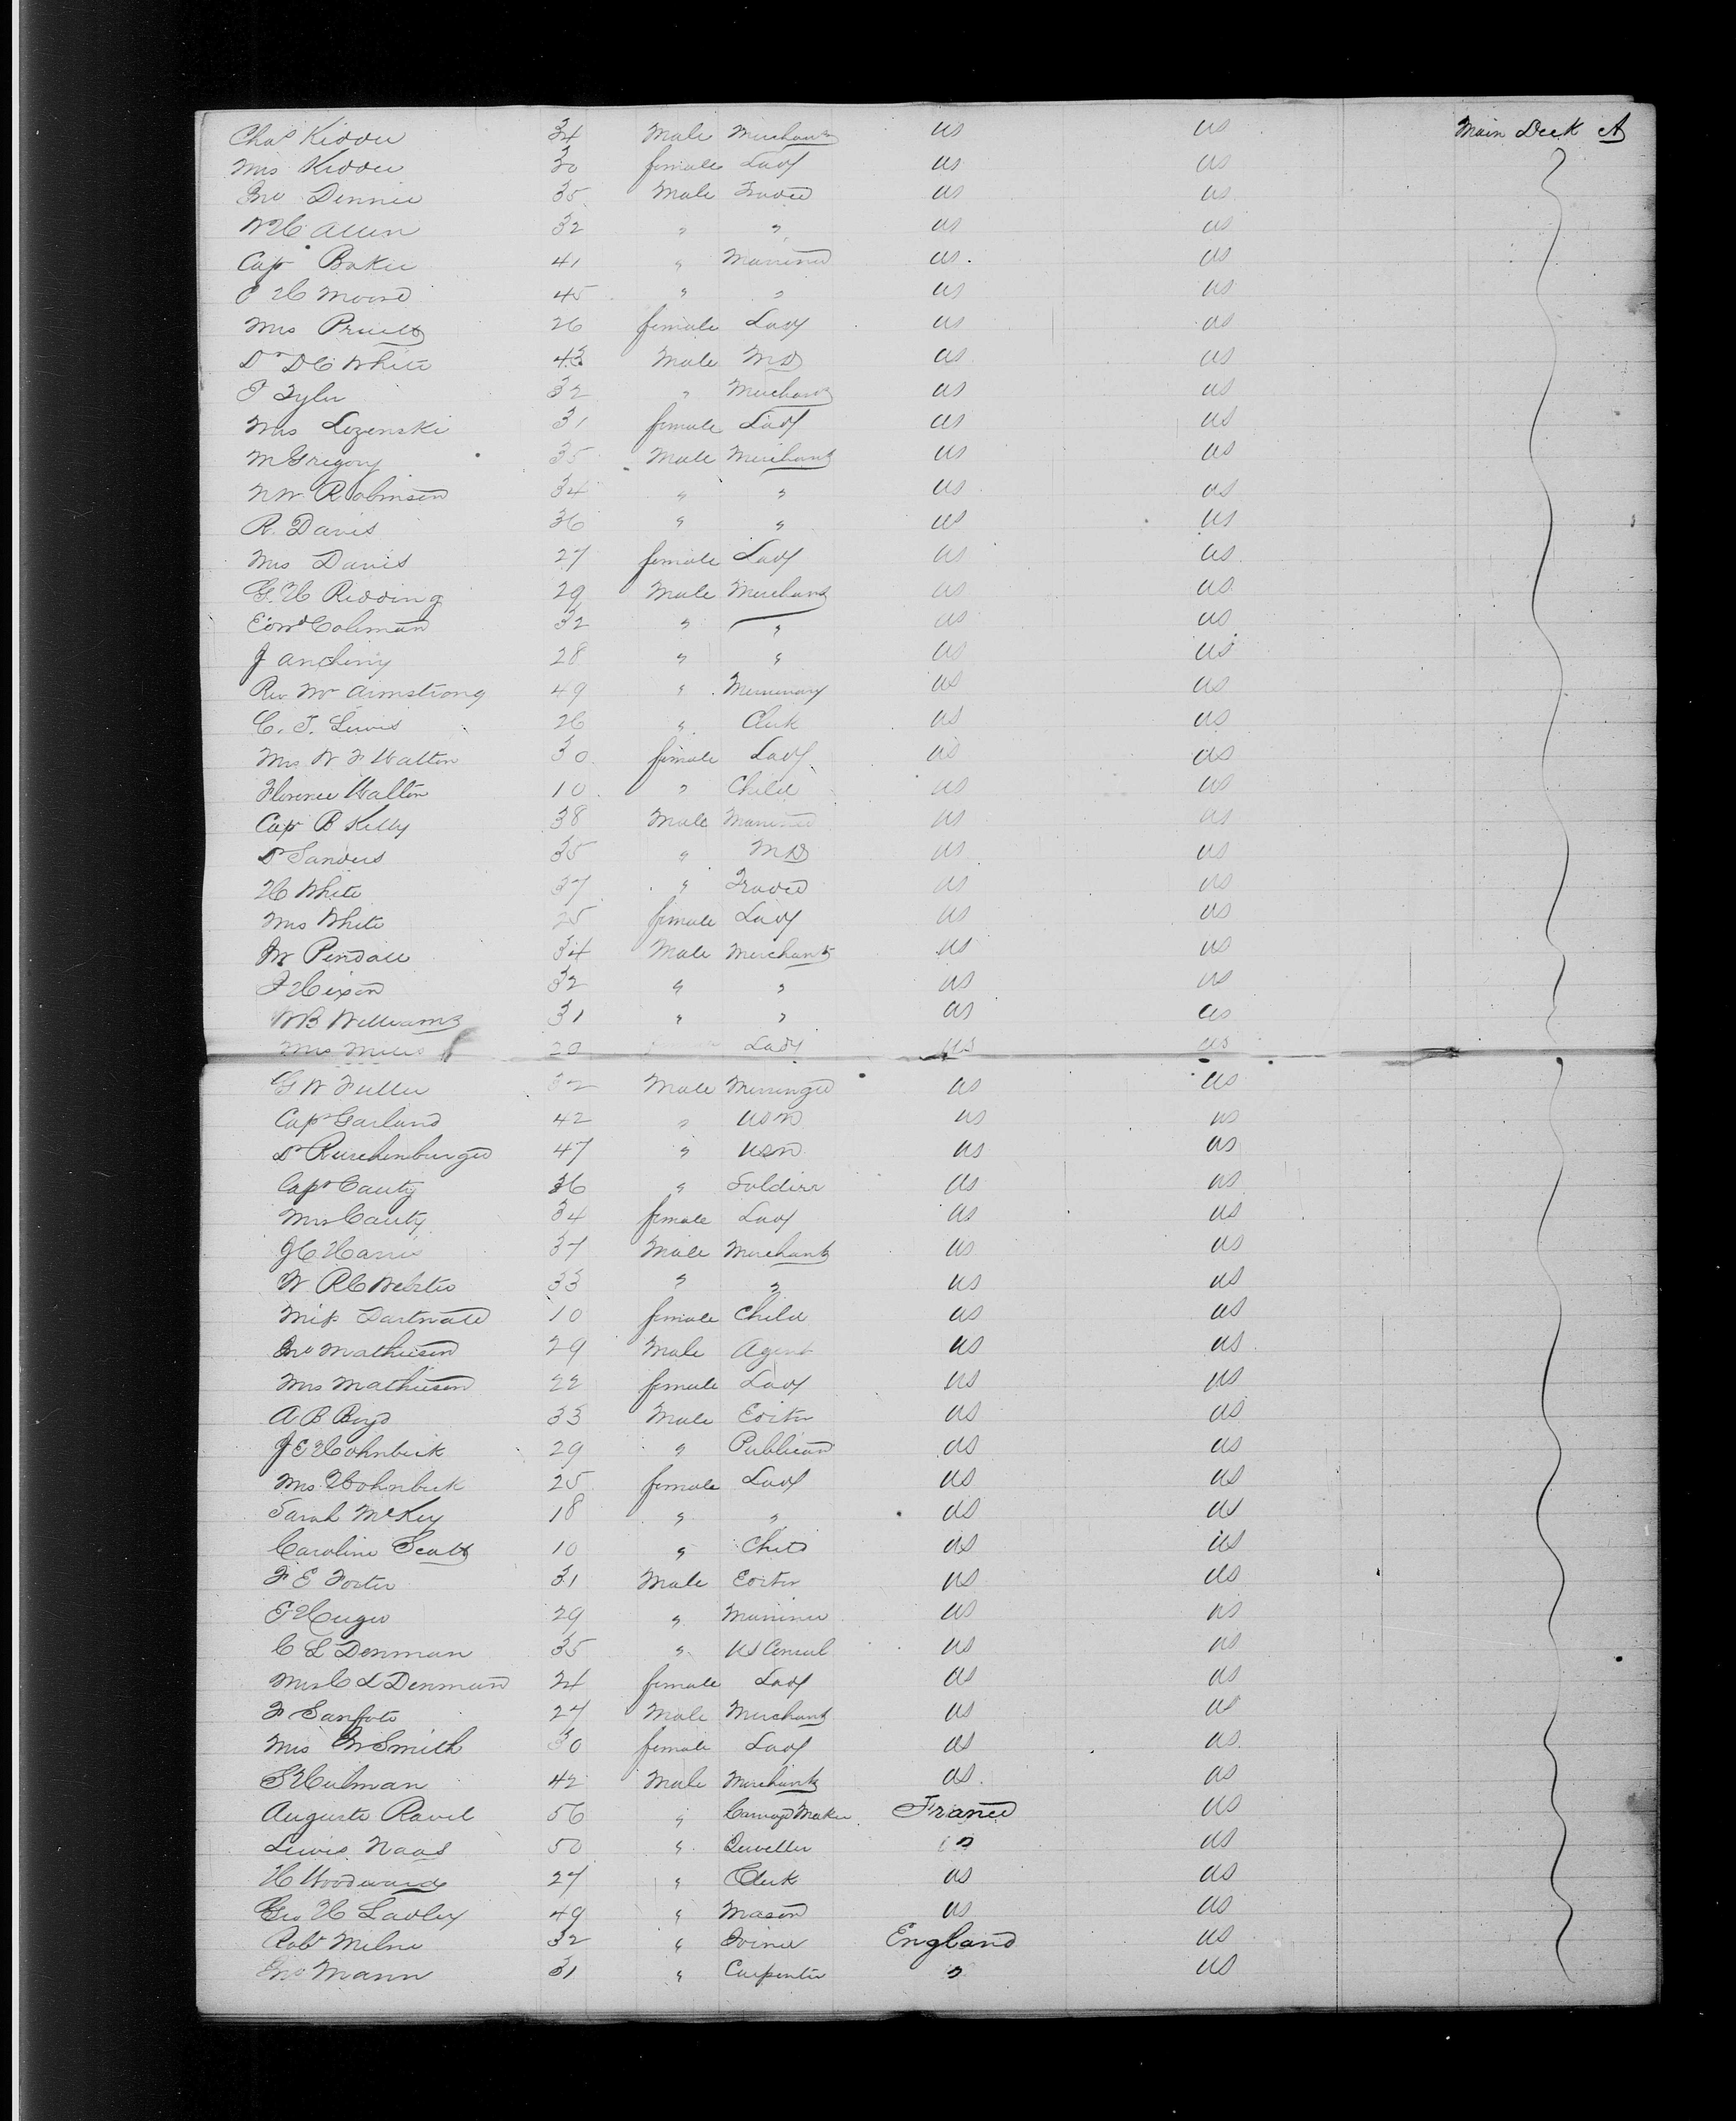 Chas Kidder 34 Male Merchant US US Main Deck A
Mrs Kidder 30 female Lady US US
Jno Dennie 35 Male Trader US US
W H Allen 32 " " US US
Cap Baker 41 " Mariner US US
C H Moore 45 " " US US
Mrs Pruett 26 female Lady US US
Dr D C White 43 Male MD US US
J Tyler 32 " Merchant US US
Mrs Lozenski 31 female Lady US US
M Gregory 35 Male Merchant US US
N W Robinson 34 " " US US
R. Davis 36 " " US US
Mrs Davis 27 female Lady US US
G. H Redding 29 Male Merchant US US
Edwd Coleman 32 " " US US
J 28 " " US US
Rev Armstrong 49 " Missionary US US
C. T. Lewis 26 " Clerk US US
Mrs W F Walton 30 female Lady US US
Florence Walton 10 " Child US US
Cap B Kelly 38 Male Mariner US US
Dr Sanders 35 " MD US US
H White 37 " Trader US US
Mrs White 25 female Lady US US
W Pendall 34 Male Merchant US US
J Hixon 32 " " US US
W B Williams 31 " " US US
Mrs Miles 20 Lady US US
G W Fuller 32 Male Messenger US US
Cap Garland 42 " USN US US
Dr Ruschenburger 47 " USN US US
Capt Cauty 36 " Soldier US US
Mrs Cauty 34 female Lady US US
J C Harris 37 Male Merchant US US
W R C Webster 33 " " US US
Miss 10 female Child US US
Jno Mathieson 29 Male Agent US US
Mrs Mathieson 22 female Lady US US
A B Boyd 33 Male Editor US US
J E Hohnbeck 29 " Publican US US
Mrs Hohnbeck 25 female Lady US US
Sarah McKey 18 " " US US
Caroline Scott 10 " Child US US
F E Foster 31 Male Editor US US
Huger 29 " Mariner US US
C L Denman 35 " US Consul US US
Mrs C L Denman 24 female Lady US US
F Sanfoto 27 Male Merchant US US
Mrs W Smith 30 female Lady US US
S Hulman 42 Male Merchant US US
Auguste Ravel 56 " Carriage Maker France US
Lewis Naas 50 " Jeweller " US
H Woodward 27 " Clerk US US
Geo H Ladley 49 " Mason US US
Robt Milne 32 " Joiner England US
Jno Mann 31 " Carpenter " US